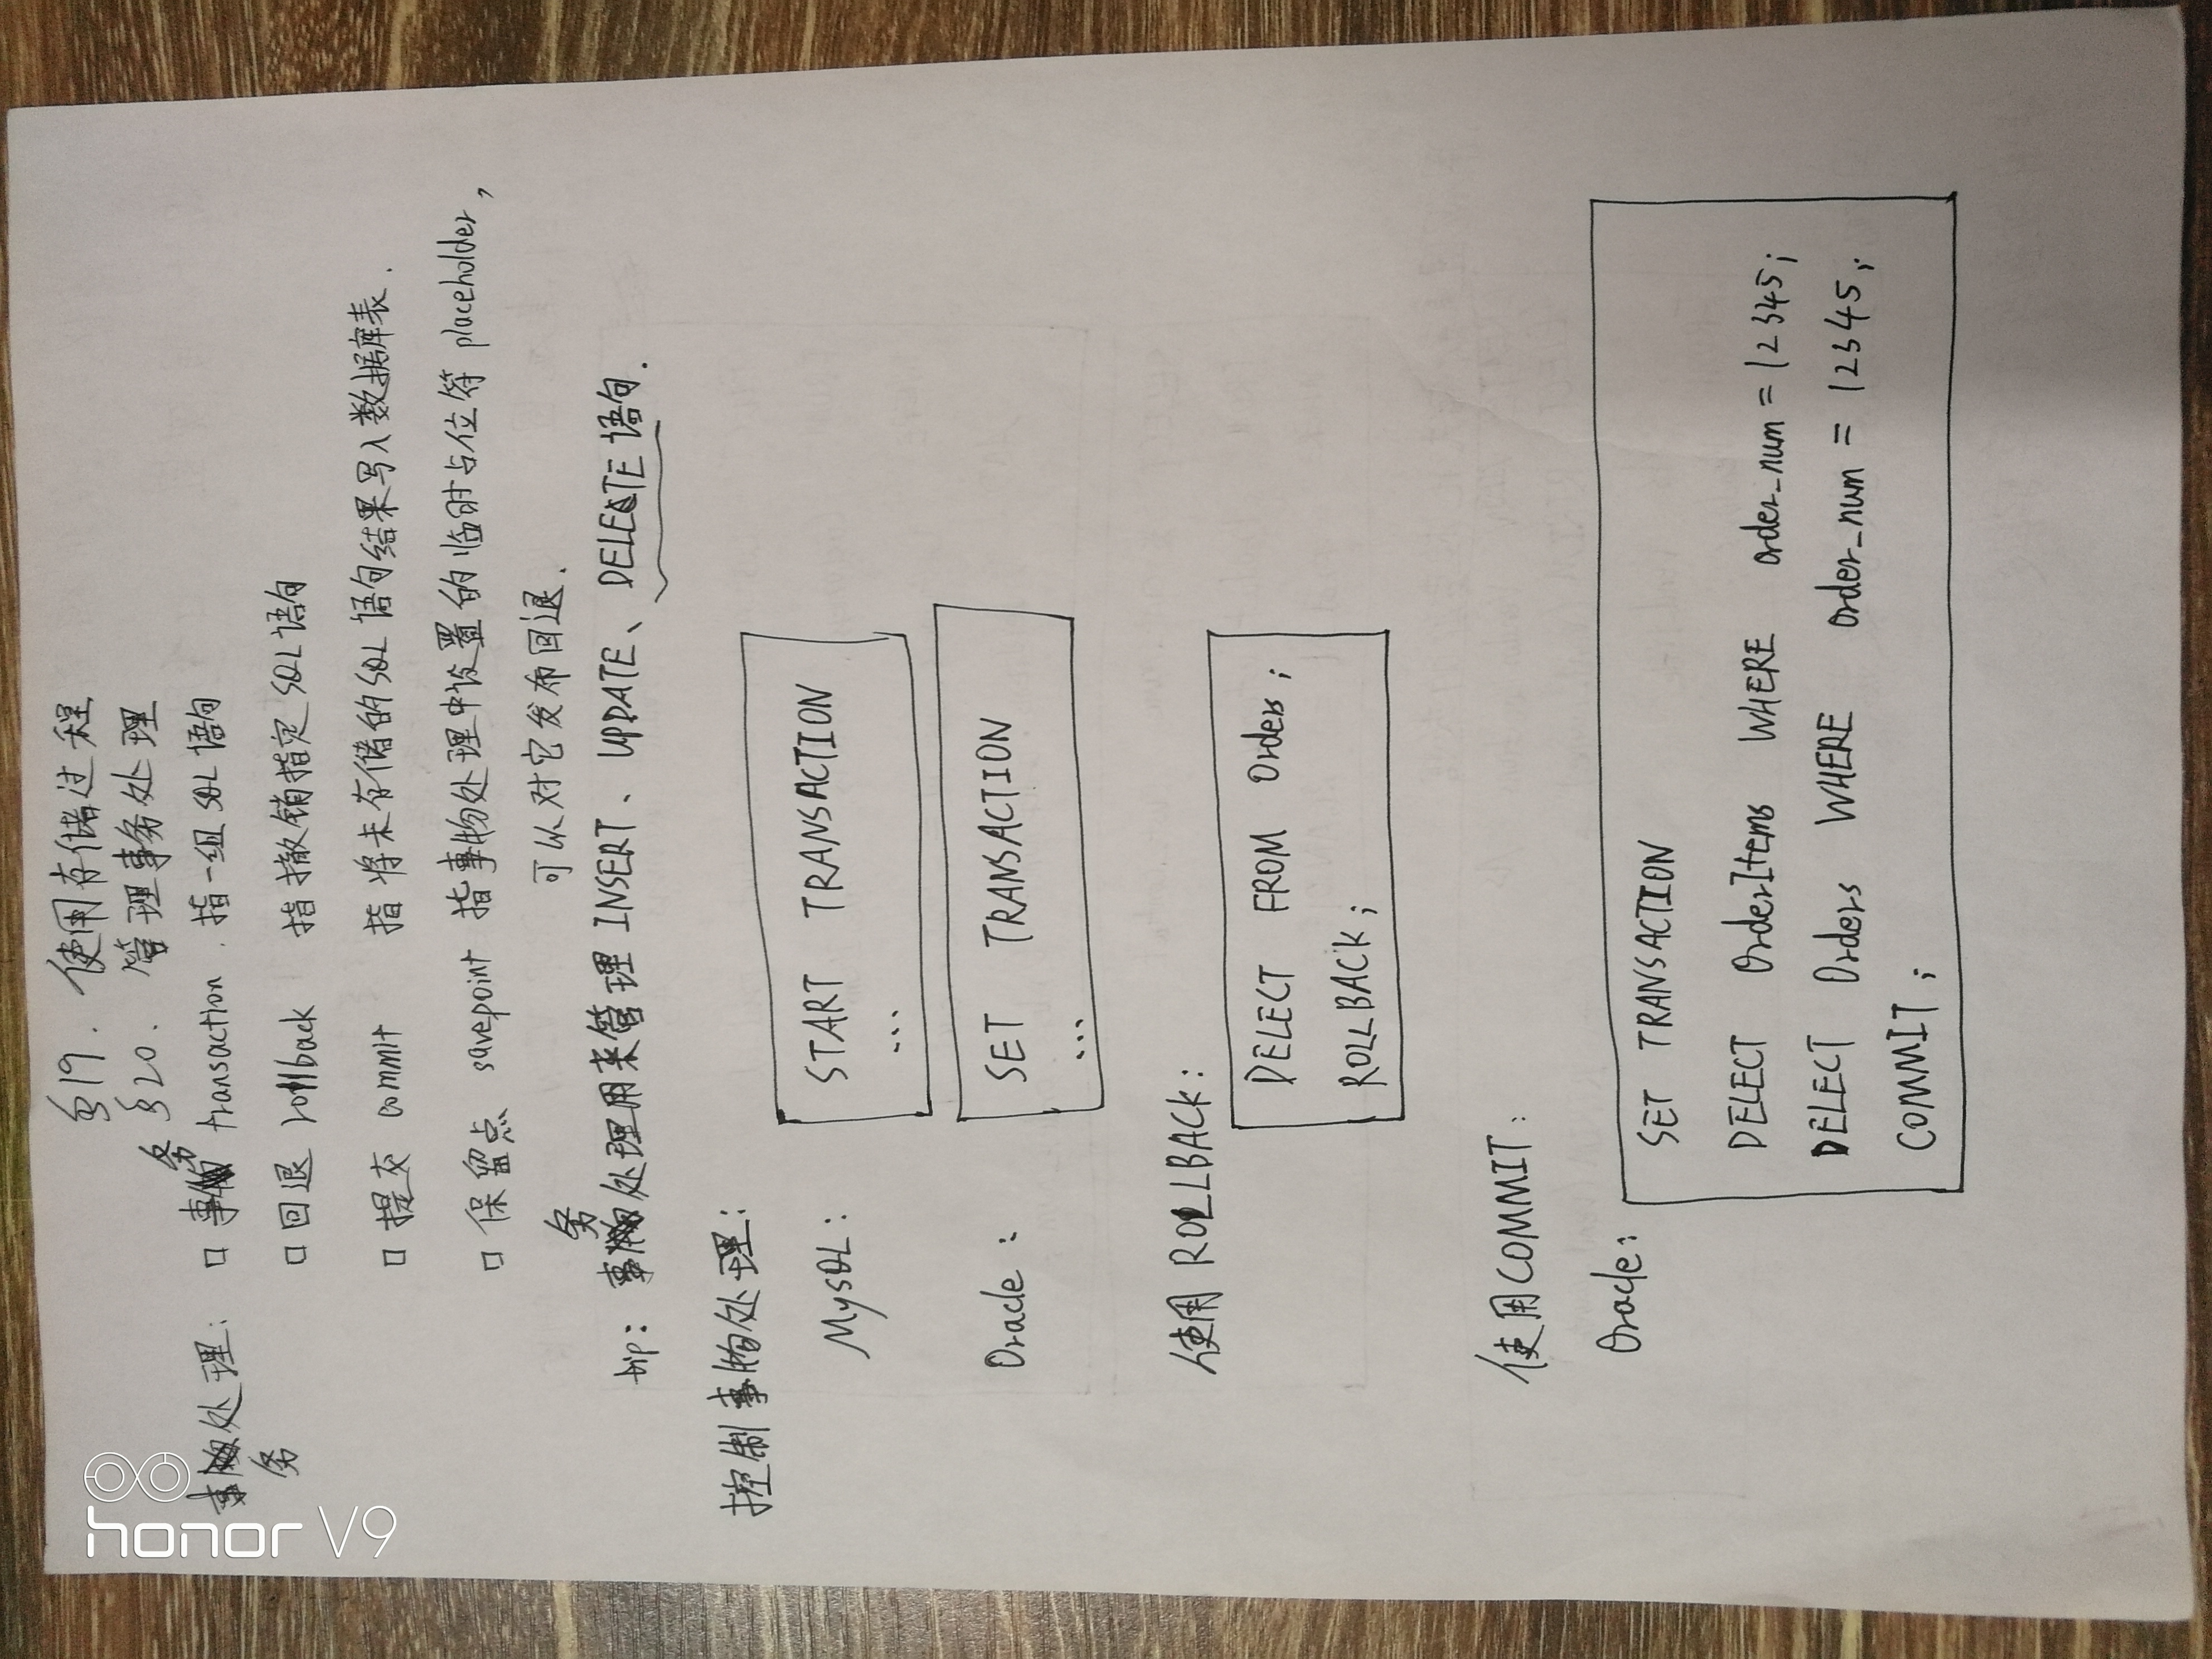 §19. 使用存储过程
§20. 管理事务处理
事务处理: □ 事务 transaction. 指一组SQL语句
□ 回退 rollback 指撤销指定SQL语句
□ 提交 commit 指将未存储的SQL语句结果写入数据库表.
□ 保留点 savepoint 指事物处理中设置的临时占位符 placeholder,
可以对它发布回退.
tip: 事务处理用来管理 INSERT、UPDATE、DELETE语句.
控制事物处理:
MySQL:
START TRANSACTION
...
Oracle:
SET TRANSACTION
...
使用 ROLLBACK:
DELECT FROM Orders;
ROLLBACK;
使用COMMIT:
Oracle:
SET TRANSACTION
DELECT OrderItems WHERE order_num = 12345;
DELECT Orders WHERE order_num = 12345;
COMMIT;
honor V9